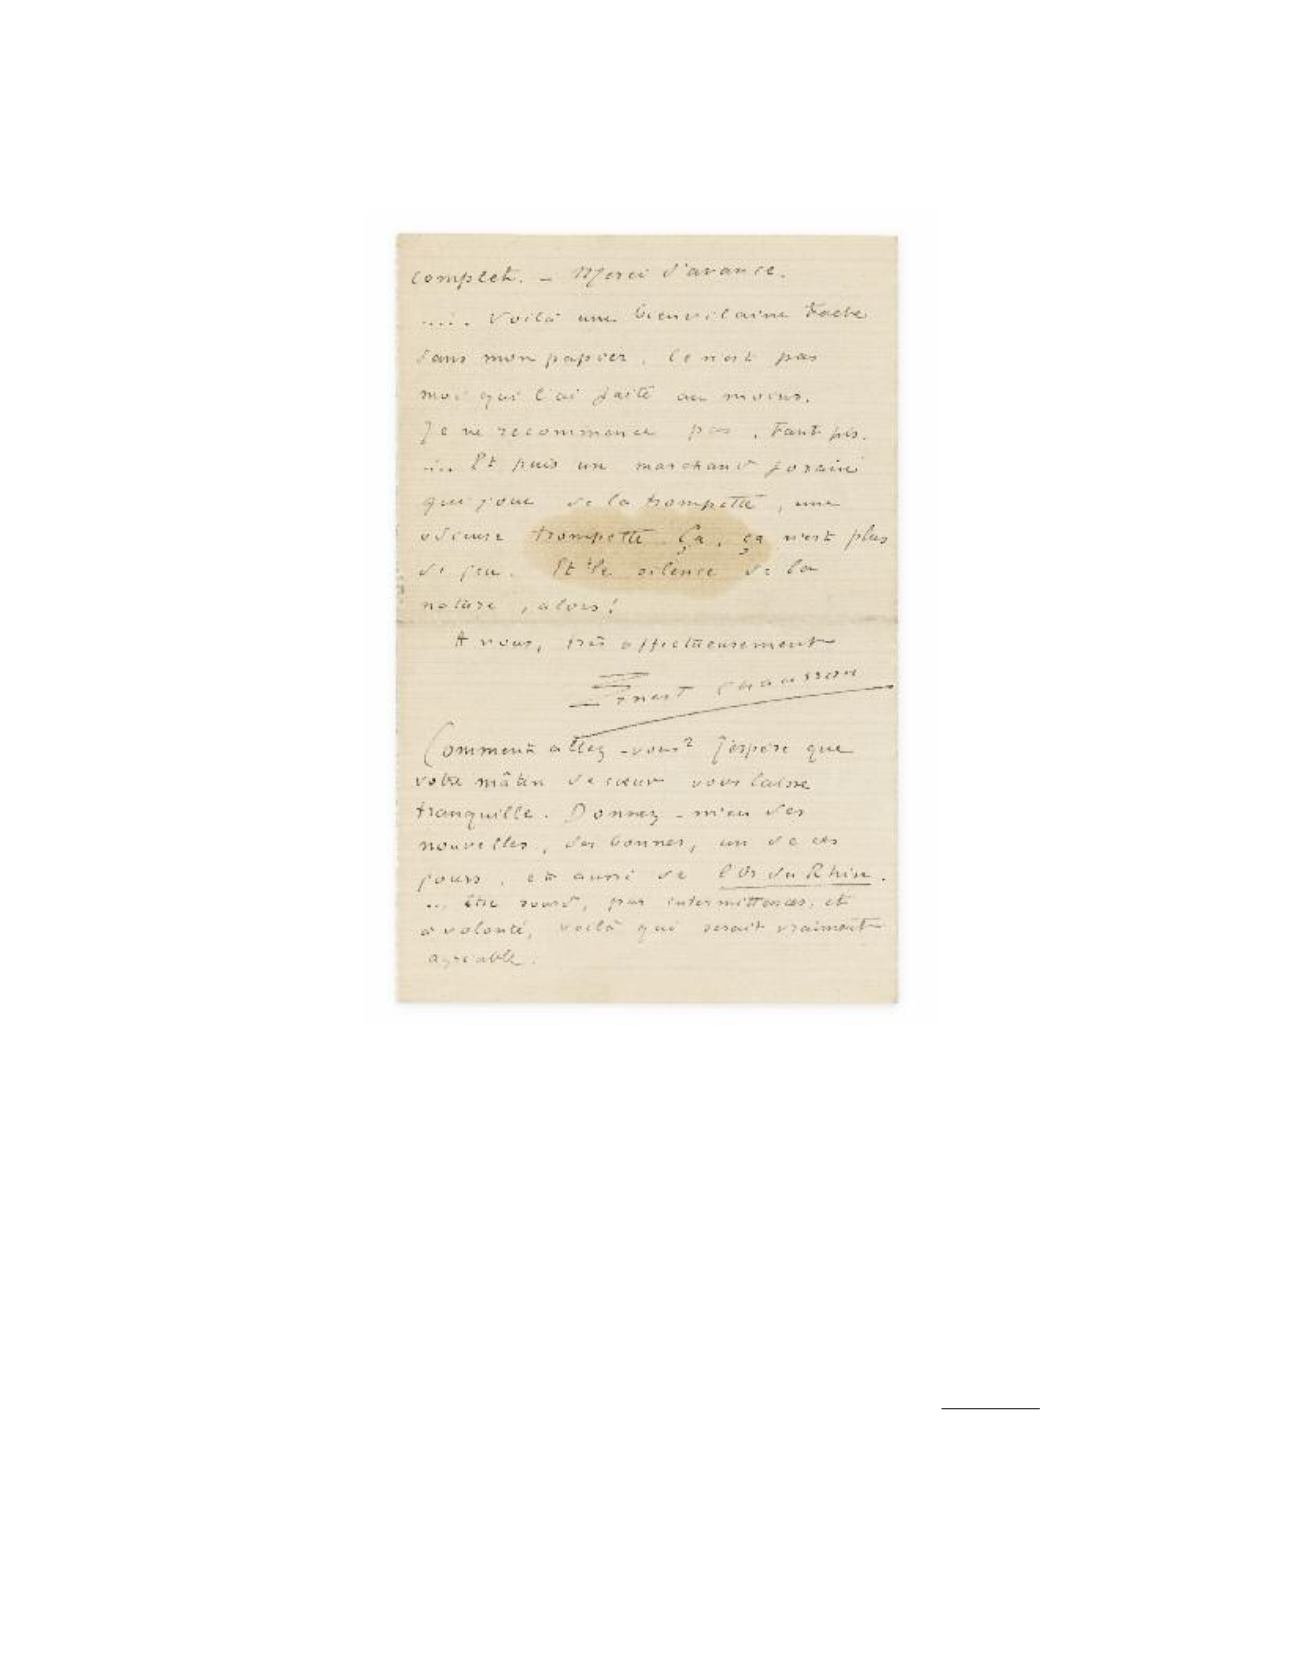 complet. – Merci d'avance.
.... Voilà une bien vilaine tache
dans mon papier. Ce n'est pas
moi qui l'ai faite au moins.
Je ne recommence pas. Tant pis.
.... Et puis un marchand forain
qui joue de la trompette, une
odieuse trompette. Ça, ça n'est plus
de jeu. Et le silence de la
nature, alors!
A vous, très affectueusement
Ernest Chausson
Comment allez-vous? J'espère que
votre mâtin de cœur vous laisse
tranquille. Donnez-m'en des
nouvelles, des bonnes, un de ces
jours, et aussi de l'Or du Rhin.
... Etre sourd, par intermittences, et
à volonté, voilà qui serait vraiment
agréable.